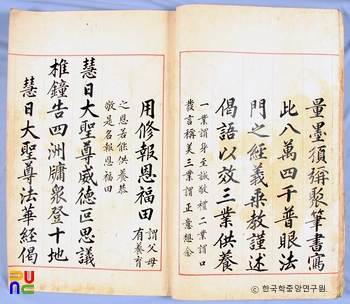 量墨須稱聚筆書寫
此八萬四千普眼法
門之經義乘教謹述
偈語以效三業供養
一業謂身至誠敬禮二業謂口
發言稱美三業謂正意想念
用修報恩福田謂父母有養育
之恩若能供養恭
敬是名報恩福田
慧日大聖尊威德叵思議
椎鐘告四洲牗衆登十地
慧日大聖尊法華經偈
한국학중앙연구원